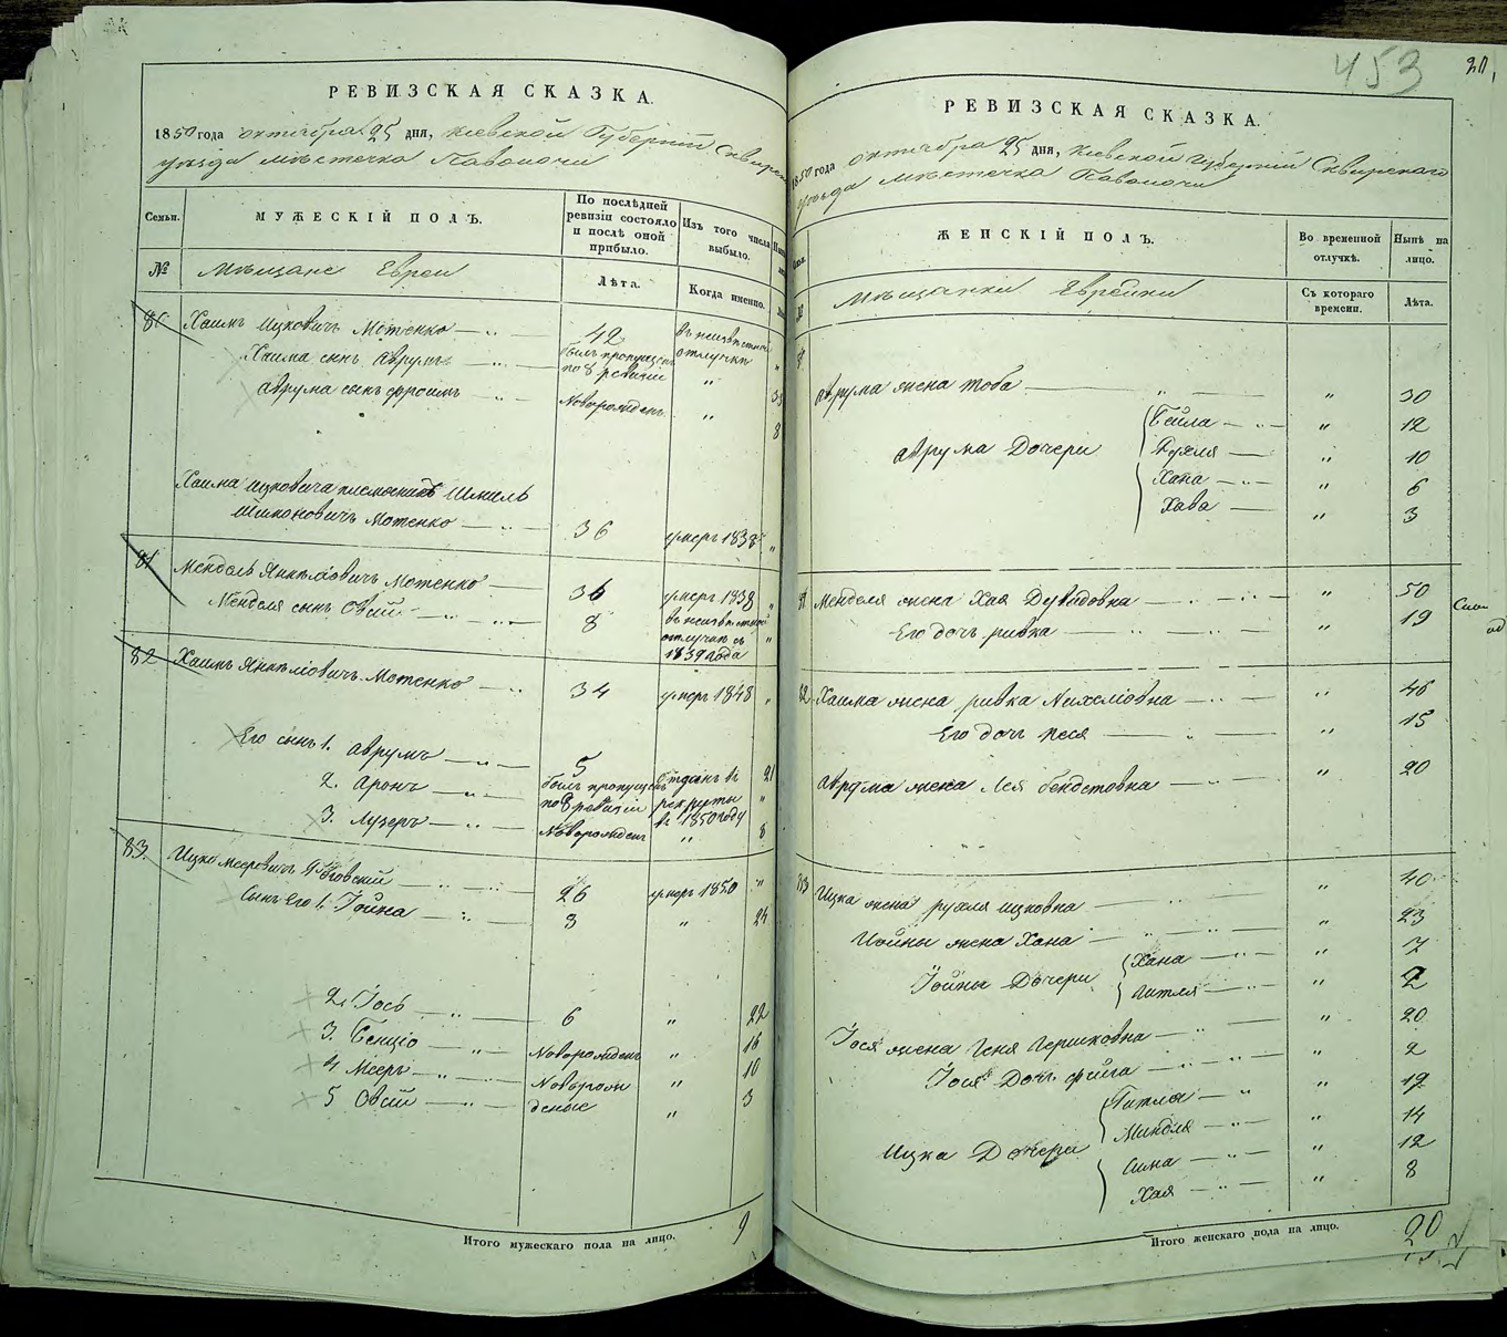 РЕВИЗСКАЯ СКАЗКА.
1850 года октября 25 дня, Киевской Губернiи Сквирск
уѣзда мѣстечка Паволочи
Семьи.
МУЖЕСКIЙ ПОЛЪ.
По послѣдней
ревизiи состояло
и послѣ оной
прибыло.
Изъ того числа
выбыло.
№
Мѣщане Евреи
Лѣта.
Когда именно.
80 Хаимъ Ицковичъ Мотенко 42 въ неизвѣстной
отлучкѣ
Хаима сынъ Аврумъ былъ пропущенъ
по 8 ревизiи " 35
Аврума сынъ Фроимъ Новорожденъ " 8
Хаима Ицковича племянникъ Шмиль
Мотенко 36 умеръ 1838 "
81 Мендель Янкелiовичъ Мотенко 36 умеръ 1838 "
Менделя сынъ Овсiй 8 въ неизвѣстной
отлучкѣ съ
1839 года "
82 Хаимъ Янкелiовичъ Мотенко 34 умеръ 1848 "
Его сынъ 1. Аврумъ 5 21
2. Аронъ былъ пропущенъ
по 8 ревизiи
Отданъ въ
рекруты
въ 1850 году "
3. Лузеръ Новорожденъ " 8
83. Ицко Мееровичъ 26 умеръ 1850 "
Сынъ его 1. Iойна 3 " 24
2. Iось 6 " 22
3. Бенцiо Новорожденъ " 16
4 Мееръ Новорож " 10
5 Овсiй денные " 3
Итого мужескаго пола на лицо. 9
453
20,
РЕВИЗСКАЯ СКАЗКА.
1850 года октября 25 дня, Киевской Губернiи Сквирскаго
уѣзда мѣстечка Паволочи
ЖЕНСКIЙ ПОЛЪ.
Во временной
отлучкѣ.
Нынѣ на
лицо.
Мѣщанки Еврейки
Съ котораго
времени.
Лѣта.
Аврума жена Тоба " 30
Аврума Дочери
Бейла " 12
Рухля " 10
Хана " 6
Хава " 3
81 Менделя жена Хая Дувидовна " 50
Его дочь Ривка " 19
82 Хаима жена Ривка Нихелiовна " 46
Его дочь Песя " 15
Аврума жена Лея " 20
83 Ицка жена Рухля Ицковна " 40
Iойны жена Хана " 23
Iойны Дочери
Хана " 7
Гитля " 2
Iося жена Геня Гершковна " 20
Iося Дочь Фейга " 2
Ицка Дочери
Гитля " 19
Миндля " 14
Сима " 12
Хая " 8
Итого женскаго пола на лицо. 20